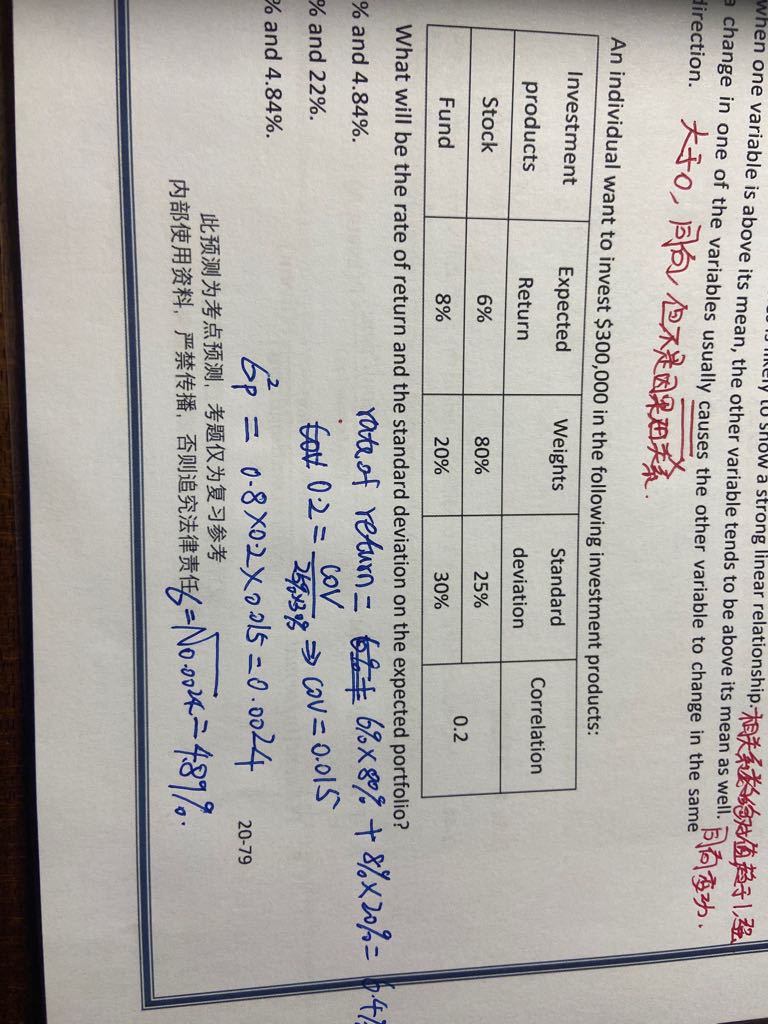 when one variable is above its mean, the other variable tends to be above its mean as well. 同向变动.
likely to show a strong linear relationship. 相关系数的绝对值趋于1,强
a change in one of the variables usually causes the other variable to change in the same
direction. 大于0, 同向, 但不是因果相关系.
An individual want to invest $300,000 in the following investment products:
Investment products Expected Return Weights Standard deviation Correlation
Stock 6% 80% 25% 0.2
Fund 8% 20% 30%
What will be the rate of return and the standard deviation on the expected portfolio?
% and 4.84%.
% and 22%.
% and 4.84%.
rate of return = 6%×80% + 8%×20% = 6.4%
0.2 = cov / 25%×3% ⇒ cov = 0.015
σp² = 0.8×0.2×0.015 = 0.0024
σ = √0.0024 = 4.89%.
此预测为考点预测,考题仅为复习参考
内部使用资料,严禁传播,否则追究法律责任
20-79